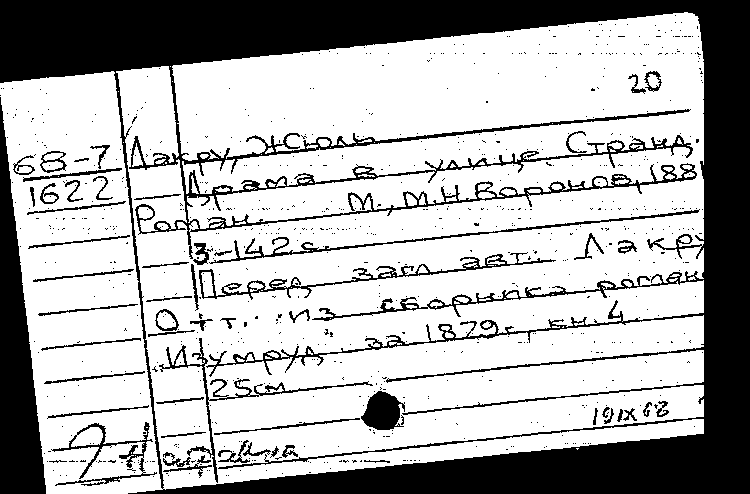 20
68-7 Лакру, Жюль
1622 Драма в улице Странд.
Роман. М., М.Н. Воронов, 188
3-142 с.
Перед загл. авт.: Лакру
Отт. из сборника роман
"Изумруд" за 1879г., кн. 4.
25см
19 IX 68